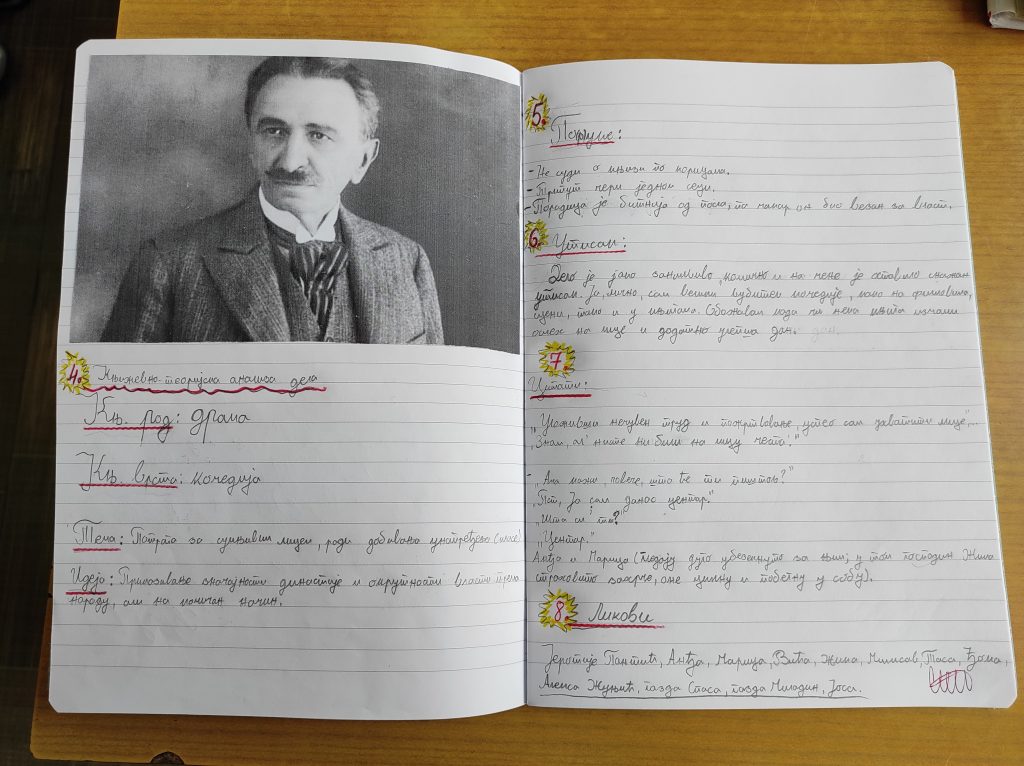 4. Књижевно-теоријска анализа дела
Књ. род: драма
Књ. врста: комедија
Тема: Потрага за сумњивим лицем, ради добијања унапређења (класе)
Идеја: Приказивање значајности династије и окрутности власти према
народу, али на комичан начин.
5.
Поруке:
- Не суди о књизи по корицама.
- Трипут мери једном сеци.
- Породица је битнија од посла, па макар он био везан за власт.
6. Утисак:
Дело је јако занимљиво, комично и на мене је оставило снажан
утисак. Ја, лично, сам велики љубитељ комедије, како на филмовима,
сцени, тако и у књигама. Обожавам када ми нека књига измами
осмех на лице и додатно улепша дан.
7.
Цитати:
„Уложивши нечувен труд и пожртвовање, успео сам ухватити лице„...
„Знам, ал' ниште ни били на лицу места."
- „Али кажи, човече, шта ће ти пиштољ?"
„Пст, Ја сам данас центар."
„Шта си ти?"
„Центар."
Анђа и Марица (гледају дуго убезекнуто за њим; у том господин Жика
страховито захрче, оне цикну и побегну у собу).
8. Ликови
Јеротије Пантић, Анђа, Марица, Вића, Жика, Милисав, Таса, Ђока,
Алекса Жуњић, газда Спаса, газда Миладин, Јоса.